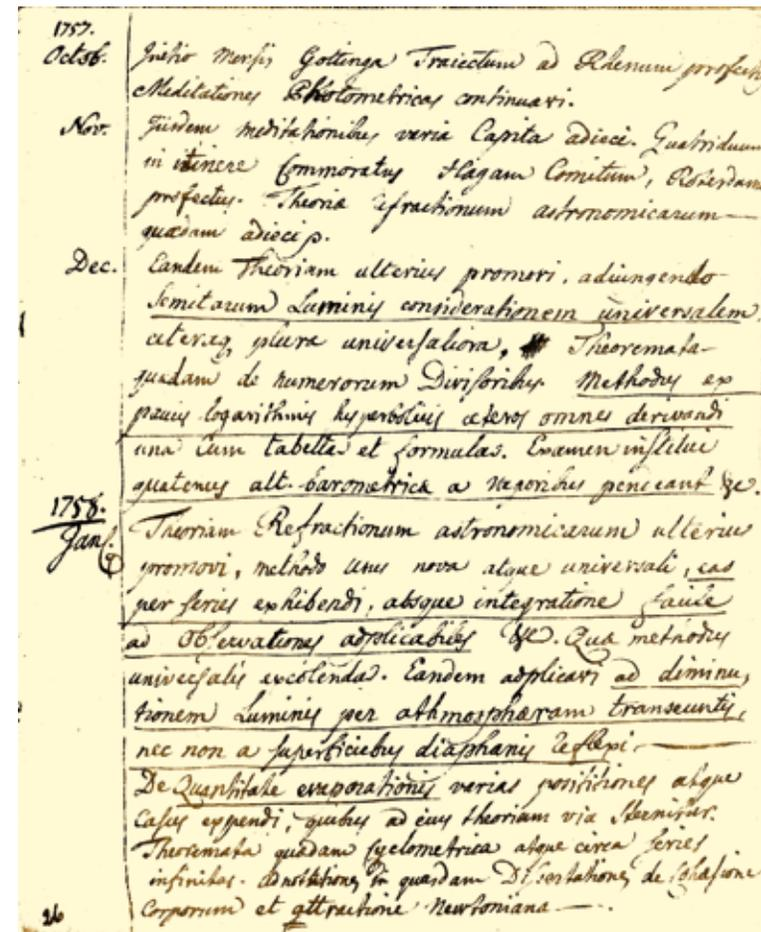 1757.
Octob. Initio Mensis Gottinga Traiectum ad Rhenum profectus
Meditationes Photometricas continuavi.
Nov. Iisdem meditationibus varia Capita adieci. Quatriduum
in itinere Commoratus Hagam Comitum, Roterdam
profectus. Theoriæ refractionum astronomicarum
quædam adieci
Dec. Eandem Theoriam ulterius promovi, adiungendo
Semitarum Luminis considerationem universalem
plura universaliora, Theoremata
quædam de numerorum Divisoribus. Methodus ex
paucis logarithmis hyperbolicis cæteros omnes derivandi
una cum tabella et formulas. Examen institui
quatenus alt. barometrica a vaporibus pendeant &c.
1758.
Jan. Theoriam Refractionum astronomicarum ulterius
promovi, methodo usus nova atque universali, eas
per series exhibendi, absque integratione facile
ad Observationes adplicabiles &c. Quæ methodus
universalis excolenda. Eandem adplicavi ad diminu,
tionem Luminis per athmosphæram transeuntis,
nec non a superficiebus diaphanis reflexi.
De Quantitate evaporationis varias positiones atque
Casus expendi, quibus ad eius theoriam via sternitur.
Theoremata quædam Cyclometrica atque circa series
infinitas. in quasdam Dissertationes de Cohæsione
Corporum et attractione Newtoniana
26